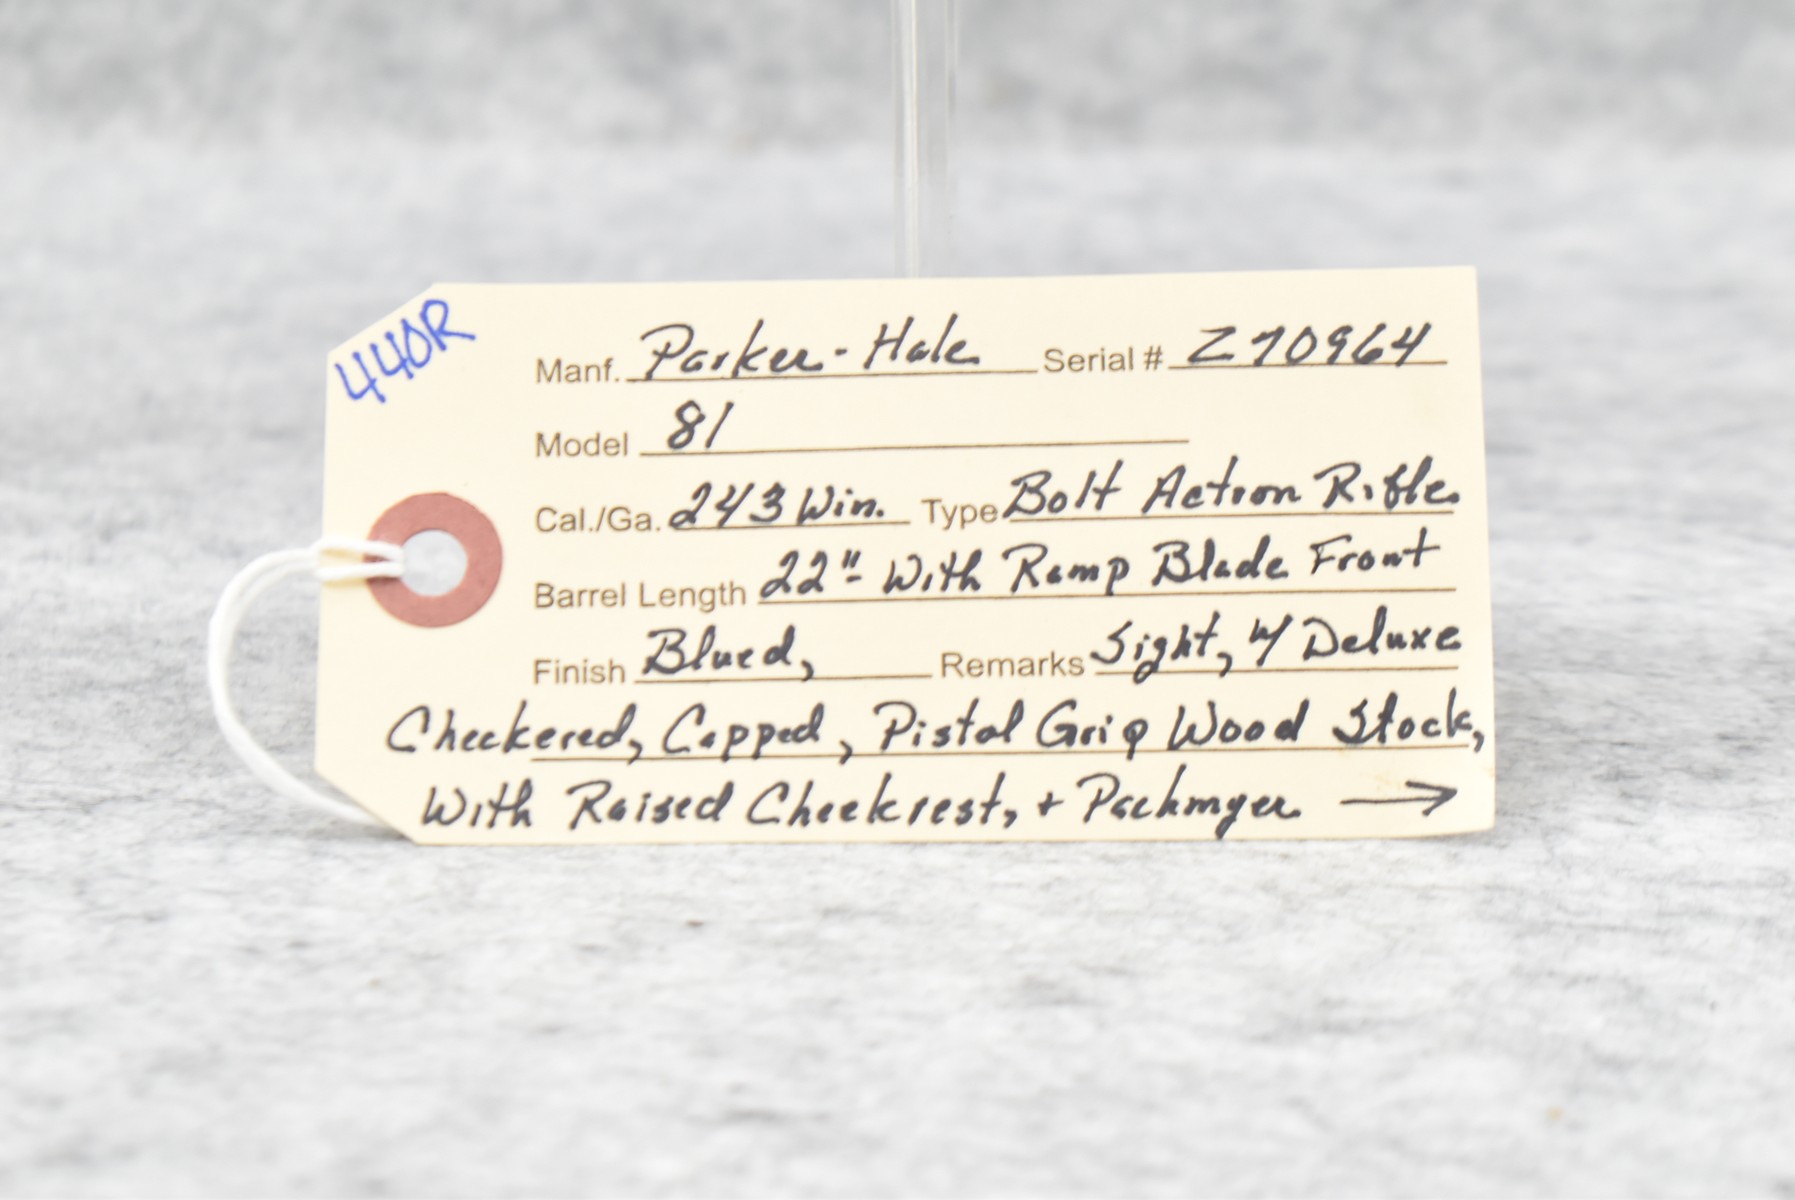 440R
Manf. Parker-Hale Serial # Z70964
Model 81
Cal./Ga. 243 Win. Type Bolt Action Rifle
Barrel Length 22" - With Ramp Blade Front
Finish Blued, Remarks Sight, w/ Deluxe
Checkered, Capped, Pistol Grip Wood Stock,
With Raised Cheekrest, + Pachmyer →